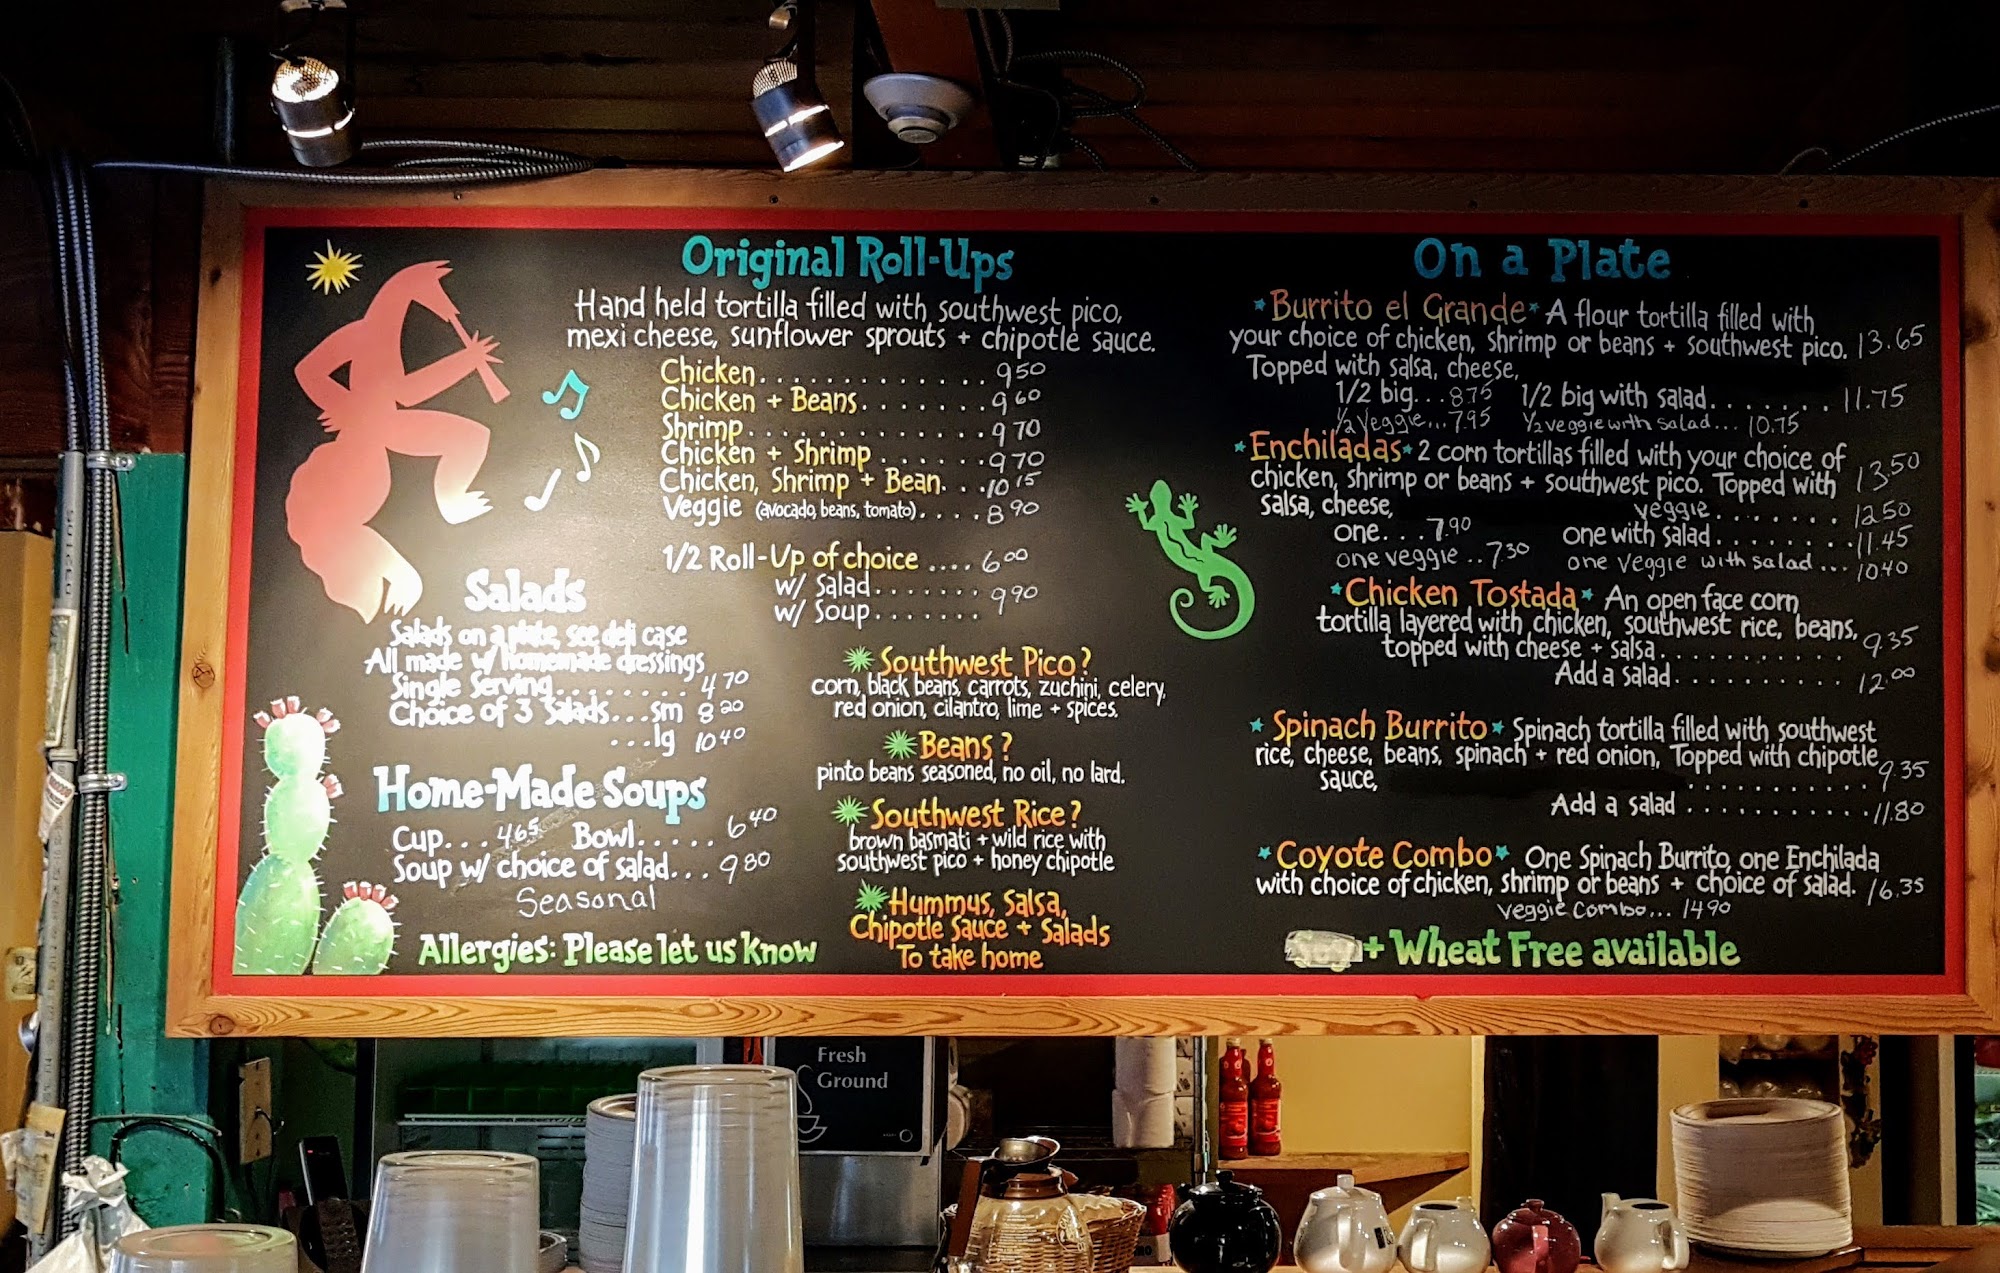 Original Roll-Ups
Hand held tortilla filled with southwest pico,
mexi cheese, sunflower sprouts + chipotle sauce.
Chicken............. 9 50
Chicken + Beans....... 9 60
Shrimp.............. 9 70
Chicken + Shrimp....... 9 70
Chicken, Shrimp + Bean. . . 10 15
Veggie (avocado, beans, tomato).... 8 90
1/2 Roll-Up of choice .... 6 00
w/ Salad.......
w/ Soup....... 9 90
Salads
Salads on a plate, see deli case
All made w/ homemade dressings
Single Serving......... 4 70
Choice of 3 Salads...sm 8 20
...lg 10 40
Home-Made Soups
Cup... 4 65 Bowl..... 6 40
Soup w/ choice of salad... 9 80
Seasonal
Allergies: Please let us know
Southwest Pico?
corn, black beans, carrots, zuchini, celery,
red onion, cilantro, lime + spices.
Beans?
pinto beans seasoned, no oil, no lard.
Southwest Rice?
brown basmati + wild rice with
southwest pico + honey chipotle
Hummus, Salsa,
Chipotle Sauce + Salads
To take home
On a Plate
*Burrito el Grande* A flour tortilla filled with
your choice of chicken, shrimp or beans + southwest pico. 13.65
Topped with salsa, cheese,
1/2 big... 8 75 1/2 big with salad....... 11.75
1/2 veggie... 7.95 1/2 veggie with salad... 10.75
*Enchiladas* 2 corn tortillas filled with your choice of
chicken, shrimp or beans + southwest pico. Topped with 13 50
salsa, cheese, veggie........ 12 50
one... 7.90 one with salad........ 11.45
one veggie .. 7 30 one veggie with salad ... 10 40
*Chicken Tostada* An open face corn
tortilla layered with chicken, southwest rice, beans,
topped with cheese + salsa........... 9.35
Add a salad.......... 12.00
*Spinach Burrito* Spinach tortilla filled with southwest
rice, cheese, beans, spinach + red onion, Topped with chipotle
sauce, ........... 9.35
Add a salad ........... 11.80
*Coyote Combo* One Spinach Burrito, one Enchilada
with choice of chicken, shrimp or beans + choice of salad. 16.35
veggie combo... 14 90
+ Wheat Free available
Fresh
Ground